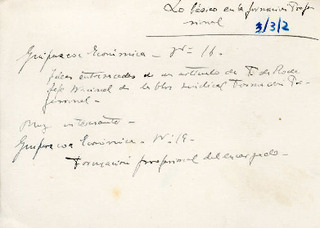 Lo básico en la formación Profe
sional
3/3/2
Guipuzcoa Económica - Nº 16.
Ideas entresacadas de un artículo de D.
Jefe Nacional de la Obra Sindical Formación Pro
fesional -
Muy interesante -
Guipuzcoa Económica - Nº 19 -
Formación profesional del encargado -